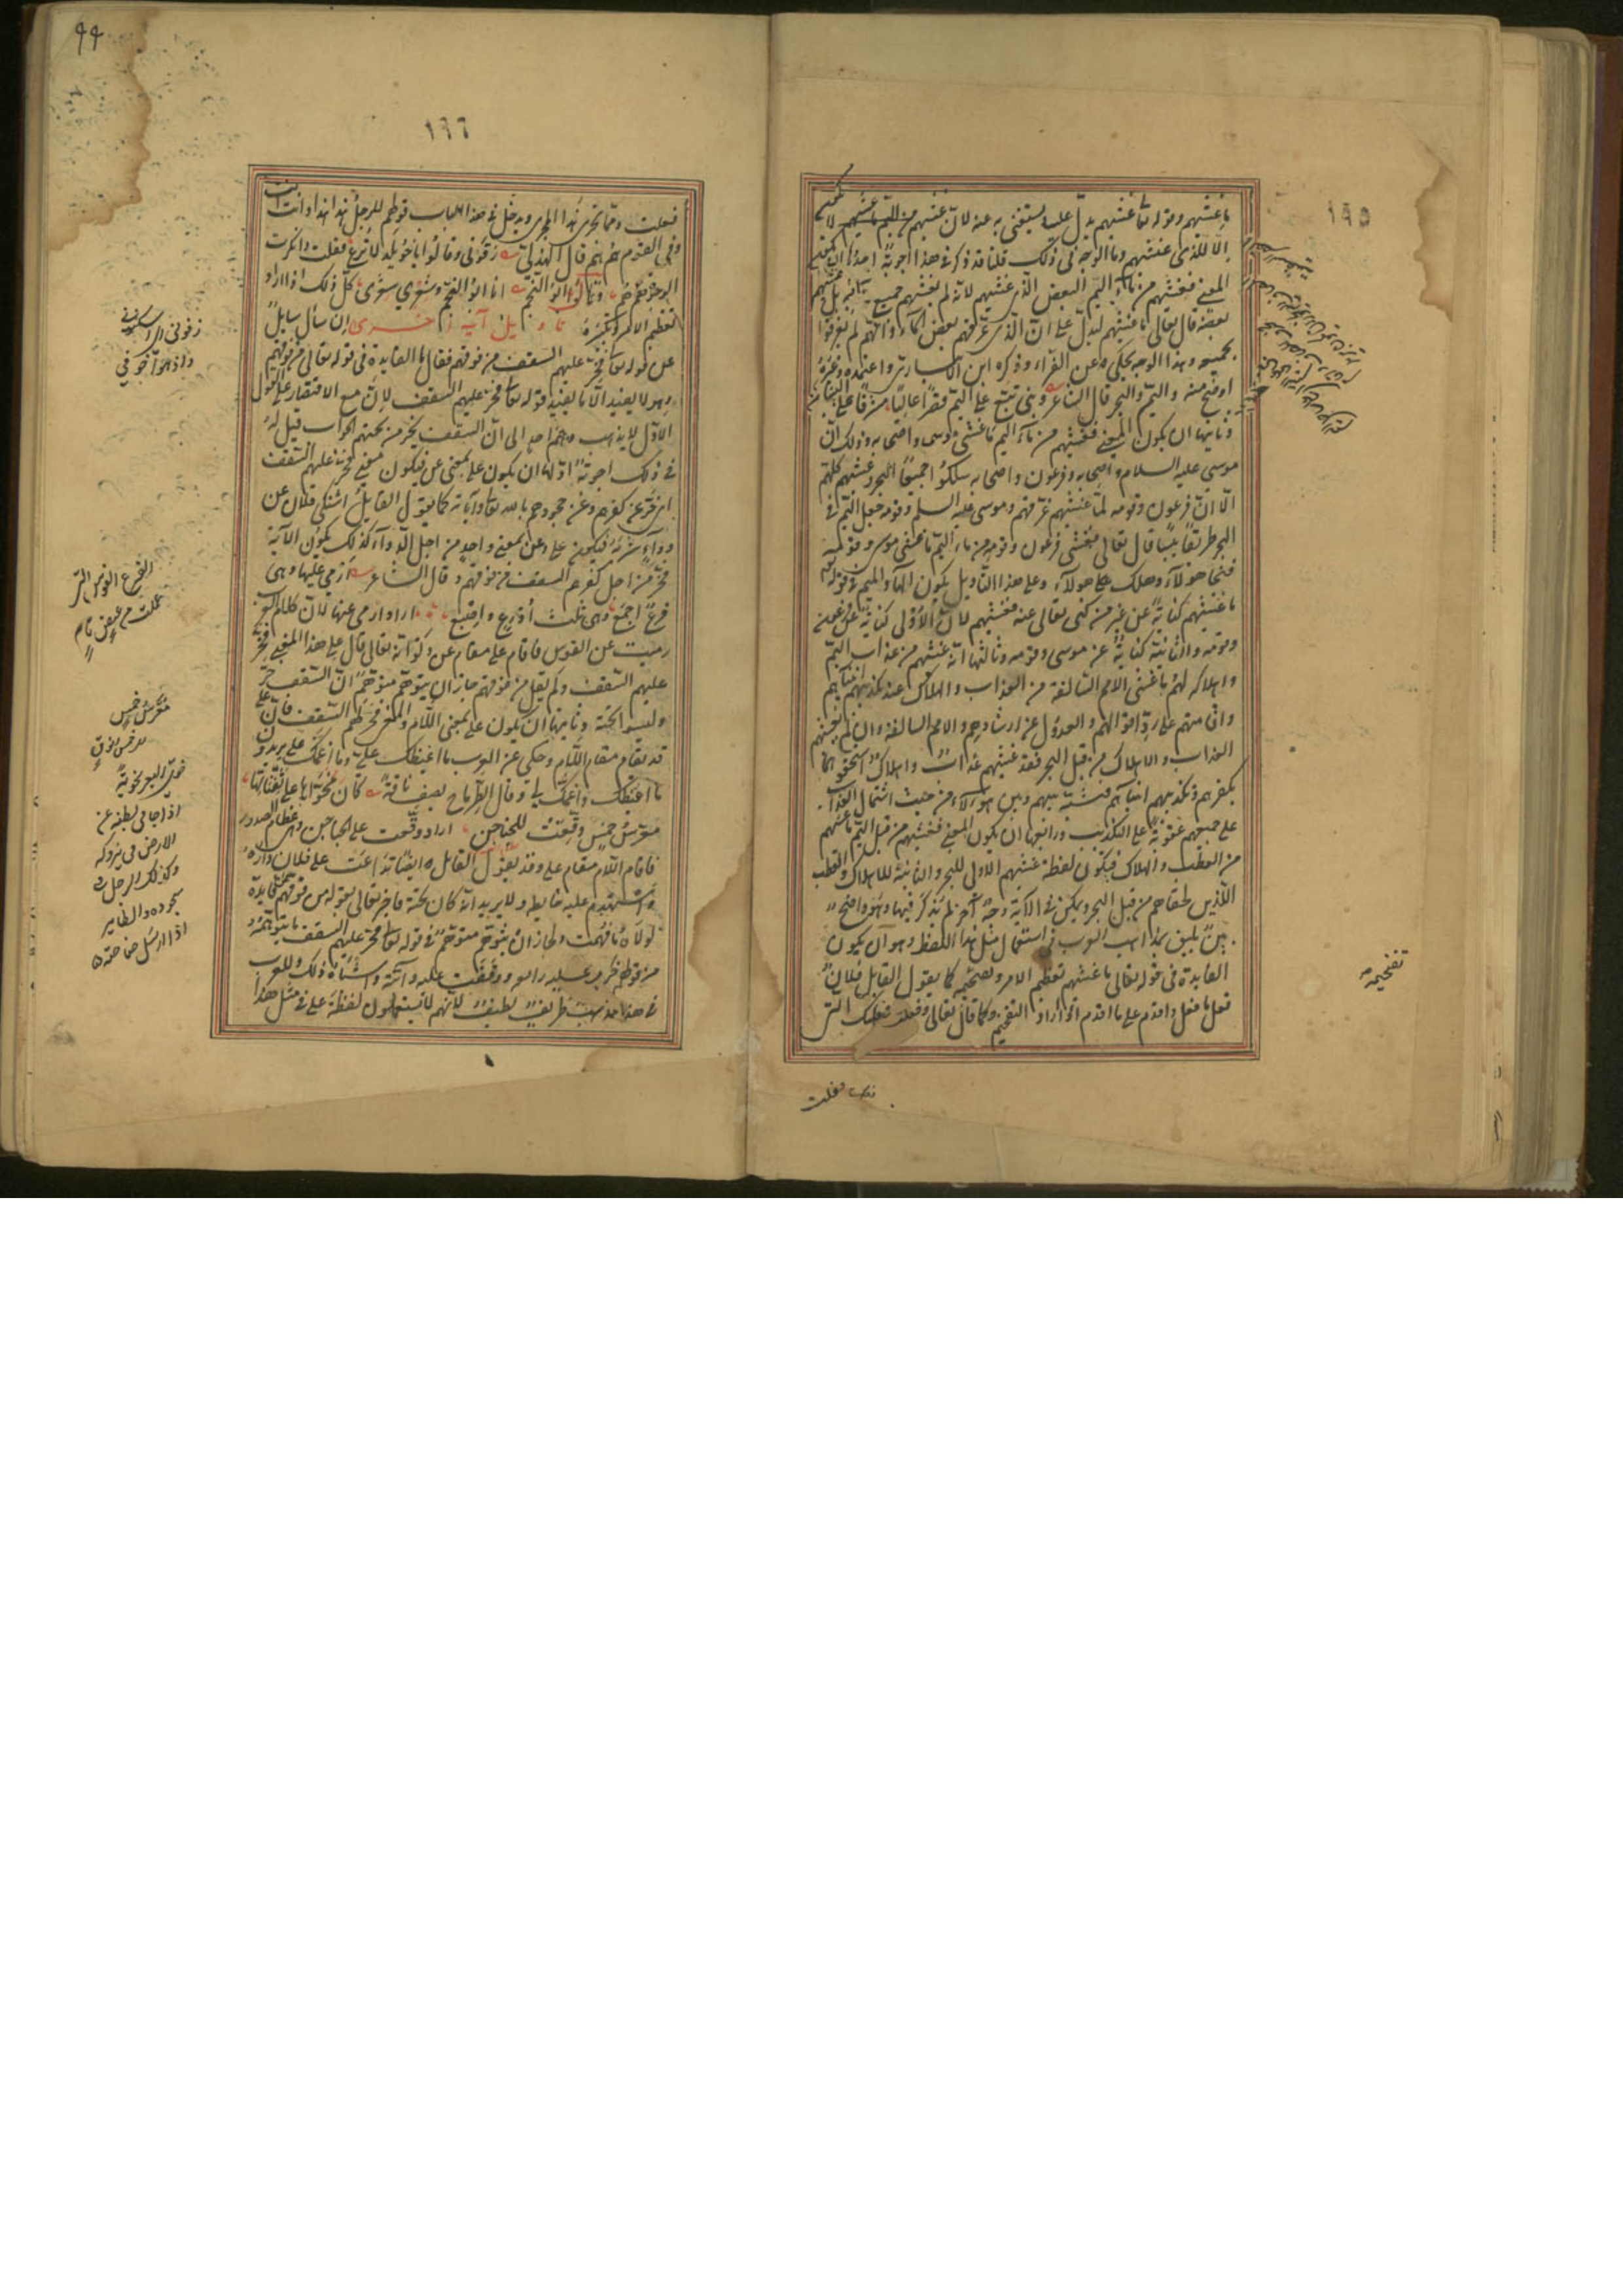 ١٩٥
ما غشيهم وقوله تعالى غشيهم يدل عليه ويستغنى به عنه لأن غشيهم من اليم ما غشيهم لا
الا الذى غشيهم وما الوجه فى ذلك قلنا قد ذكر فى هذا اجوبة احدها ان يكون
المعنى فغشيهم من ماء اليم البعض الذى غشيهم لانه لم يغشهم جميع مائه بل غشيهم
بعضه فقال تعالى ما غشيهم ليدل على ان الذى غرقهم بعض الماء وانهم لم يغرقوا
بجميعه وهذا الوجه يحكى عن الفراء وذكره ابن الانبارى واعتمده وغيره
اوضح منه واليم والبحر قال الشاعر وبنى تبع على اليم قصرا عاليا مشرفا على البنيان
وثانيها ان يكون المعنى فغشيهم من ماء اليم ما غشى موسى واصحابه وذلك ان
موسى عليه السلام واصحابه وفرعون واصحابه سلكوا جميعا البحر وغشيهم كلهم
الا ان فرعون وقومه لما غشيهم غرقهم وموسى عليه السلم وقومه جعل لهم فى
البحر طريقا يبسا فقال تعالى فغشى فرعون وقومه من ماء اليم ما غشى موسى وقومه
فنجا هولاء وهلك هولاء وعلى هذا التاويل يكون الهاء والميم فى قوله
ما غشيهم كناية عن غير من كنى تعالى عنه فغشيهم لان الاولى كناية عن فرعون
وقومه والثانية كناية عن موسى وقومه وثالثها انه غشيهم من عذاب اليم
واهلاكه لهم ما غشى الامم السالفة من العذاب والهلاك عند تكذيبهم انبياءهم
واقامتهم على رد اقوالهم والعدول عن ارشادهم والامم السالفة وان لم يغشهم
العذاب والاهلاك من قبل البحر فقد غشيهم عذاب واهلاك استحقوهما
بكفرهم وتكذيبهم انبياءهم فشبه بينهم وبين هولاء من حيث اشتمال العذاب
على جميعهم عقوبة على التكذيب ورابعها ان يكون المعنى فغشيهم من قبل اليم ما غشيهم
من العطب والهلاك فيكون لفظة غشيهم الاولى للبحر والثانية للهلاك والعطب
اللذين لحقاهم من قبل البحر ويمكن فى الاية وجه آخر لم يذكر فيها وهو واضح
بين يليق بمذاهب العرب فى استعمال مثل هذا اللفظ وهو ان يكون
الفايدة فى قوله تعالى ما غشيهم تعظيم الامر وتفخيمه كما يقول القايل فلان
فعل ما فعل واقدم على ما اقدم اذا اراد التفخيم وكما قال تعالى وفعلت فعلتك التى
تفخيمه
فعلت
٩٩
١٩٦
فعلت وما يجرى هذا المجرى ويدخل فى هذا الباب قولهم للرجل هذا هذا وانت انت
وفى القوم هم هم قال الهذلى رفونى وقالوا يا خويلد لا ترع فقلت وانكرت
الوجوه هم هم وقال ابو النجم انا ابو النجم وشعرى شعرى كل ذلك اذا اراد
تعظيم الامر وتكبيره تاويل آية اخرى ان سأل سايل
عن قوله تعالى فخر عليهم السقف من فوقهم فقال ما الفايدة فى قوله تعالى من فوقهم
وهو لا يفيد الا ما يفيد قوله تعالى فخر عليهم السقف لان مع الاقتصار على القول
الاول لا يذهب وهم احد الى ان السقف يخر من تحتهم الجواب قيل له
فى ذلك اجوبة اولها ان يكون على بمعنى عن فيكون معنى فخر عليهم السقف
اى خر عن كفرهم وعن جحودهم بالله تعالى وآياته كما يقول القايل اشتكى فلان عن
دواء شربه فيكون على وعن بمعنى واحد من اجل الدواء كذلك يكون الاية
فخر من اجل كفرهم السقف من فوقهم وقال الشاعر ارمى عليها وهى
فرع اجمع وهى ثلث اذرع واصبع اراد ارمى عنها لان كلام العرب
رميت عن القوس فاقام على مقام عن ولو انه تعالى قال على هذا المعنى فخر
عليهم السقف ولم يقل من فوقهم جاز ان يتوهم متوهم ان السقف خر
وليسوا تحته وثانيها ان يكون على بمعنى اللام والمعنى فخر لهم السقف فان على
قد تقام مقام اللام وحكى عن العرب ما اغيظك على وما اغمك على يريدون
ما اغيظك لى واغمك لى وقال الطرماح يصف ناقة كان مخواها على ثفناتها
معرس خمس وقعت للجناجن اراد وقعت على الجناجن وهى عظام الصدور
فاقام اللام مقام على وقد يقول القائل ايضا تداعت على فلان داره
واستهدم عليه حايطه ولا يريد انه كان تحته فاخبر تعالى بقوله من فوقهم عن فايدة
لولاه ما فهمت ولجاز ان يتوهم متوهم فى قوله تعالى فخر عليهم السقف ما يتوهمه
من قولهم خرب عليه رابعه ووقفت عليه دابته واشباه ذلك وللعرب
فى هذا مذهب ظريف لطيف لانهم لا يستعملون لفظة على فى مثل هذا
رفونى اى سكنونى
الفرع القوس التى
عملت من
معرس خمس
خوى البعير تخوية
اذا جافى بطنه عن
الارض فى بروكه
وكذلك الرجل فى
سجوده والطاير
اذا ارسل جناحيه